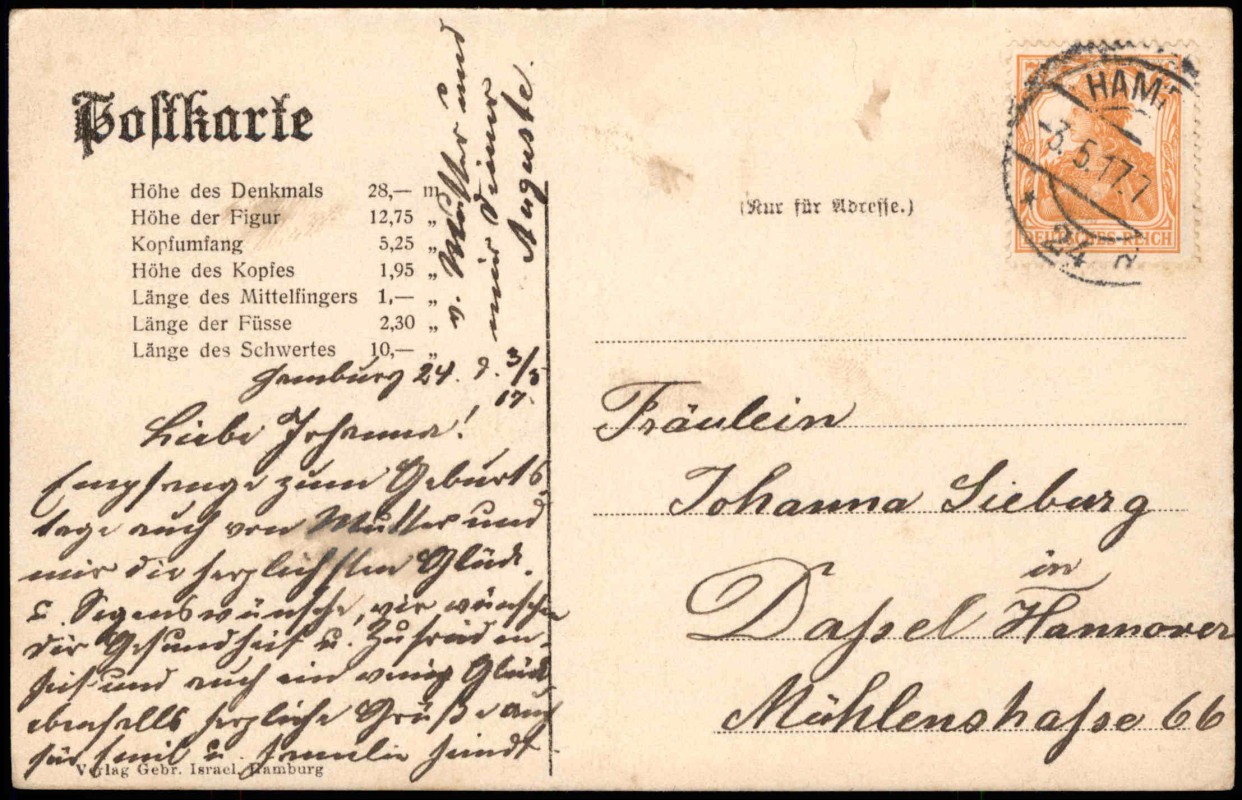 Postkarte
Höhe des Denkmals 28,— m
Höhe der Figur 12,75 „
Kopfumfang 5,25 „
Höhe des Kopfes 1,95 „
Länge des Mittelfingers 1,— „
Länge der Füsse 2,30 „
Länge des Schwertes 10,— „
Hamburg 24. d. 3/5
17.
Liebe Johanna!
Empfange zum Geburts
tage auch von Mutter und
mir die herzlichsten Glück-
u. Segenswünsche, wir wünschen
dir Gesundheit u. Zufrieden-
heit und auch ein wenig Glück
ebenfalls herzliche Grüße auch
für Emil u. Familie
v. Mutter und
Auguste.
Verlag Gebr. Israel, Hamburg
(Nur für Adresse.)
HAM
-3.5.17.7
* 24
DEUTSCHES REICH
Fräulein
Johanna Sieburg
in
Dassel Hannover
Mühlenstraße 66